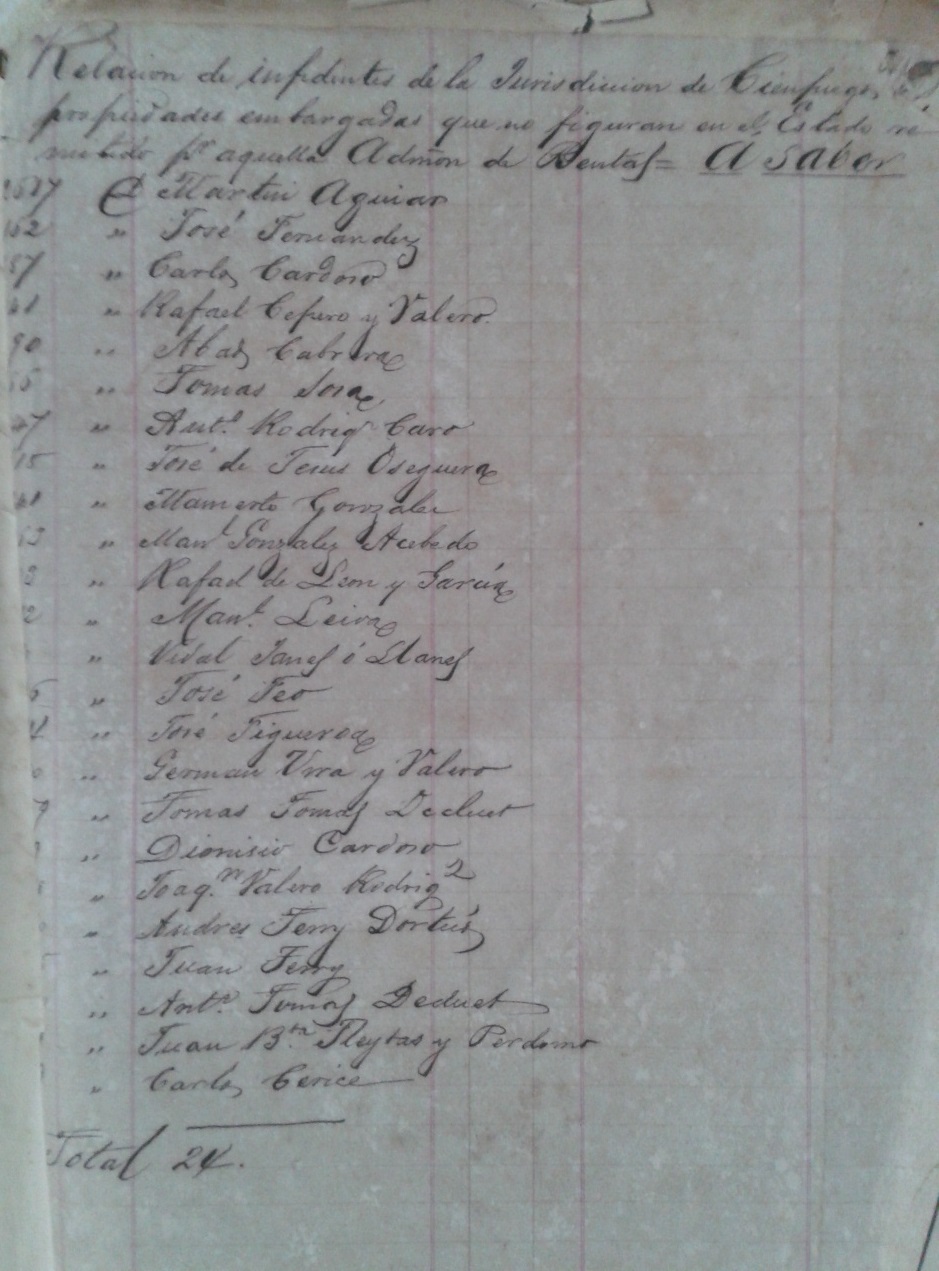 Relacion de infidentes de la Jurisdiccion de Cienfuegos,
propiedades embargadas que no figuran en el Estado re-
mitido pr aquella Admon de Rentas= A Saber
D Martin Aguiar
" José Fernandez
57 " Carlos Cardoso
" Rafael Cepero y Valero.
90 " Abad Cabrera
" Tomas Sosa
47 " Anto. Rodrigz Caro
15 " José de Jesus Oseguera
" Mamerto Gonzalez
" Manl Gonzalez Acebedo
" Rafael de Leon y García
" Manl. Leiva
" Vidal Janes ó Llanes
" José Feo
" José Figueroa
" German Urra y Valero
" Tomas Tomas Decluet
" Dionisio Cardoso
" Joaqn. Valero Rodrigz
" Andres Terry Dortús
" Juan Terry
" Anto. Tomas Decluet
" Juan Bta. Fleytas y Perdomo
" Carlos Cerice
Total 24.